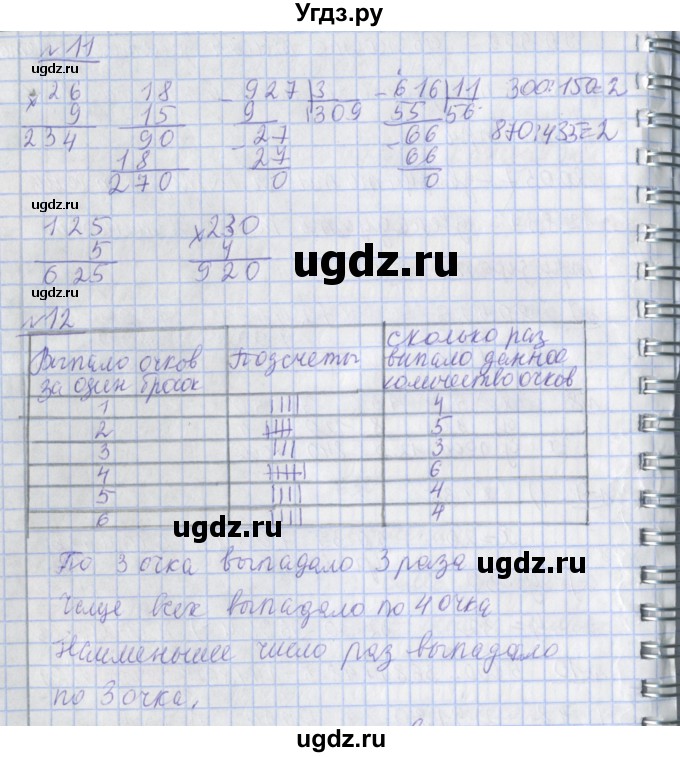 Угдз.ру
№ 11
ugdz.ru
× 26
9
234
18
15
90
18
270
- 927 | 3
9 309
- 27
27
0
- 616 | 11
55 56
- 66
66
0
300:150=2
870:435=2
ugdz.ru
ugdz.ru
ugdz.ru
125
5
625
× 230
4
920
ugdz.ru
ugdz.ru
№ 12
Выпало очков за один бросок
Подсчеты
сколько раз выпало данное количество очков
1 |||| 4
2 |||| 5
3 ||| 3
4 ||||| 6
5 |||| 4
6 |||| 4
ugdz.ru
ugdz.ru
По 3 очка выпадало 3 раза
Чаще всех выпадало по 4 очка
Наименьшее число раз выпадало
по 3 очка,
ugdz.ru
ugdz.ru